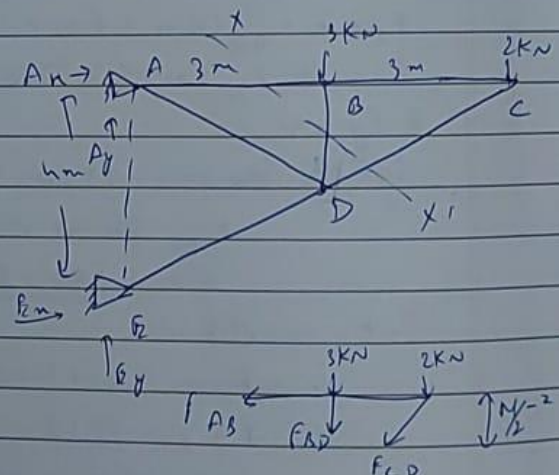 X
3KN 2KN
Ax→ A 3m 3m
B C
Ay
4m
D X1
Ex→
E
Ey
3KN 2KN
AB FBD
FCD